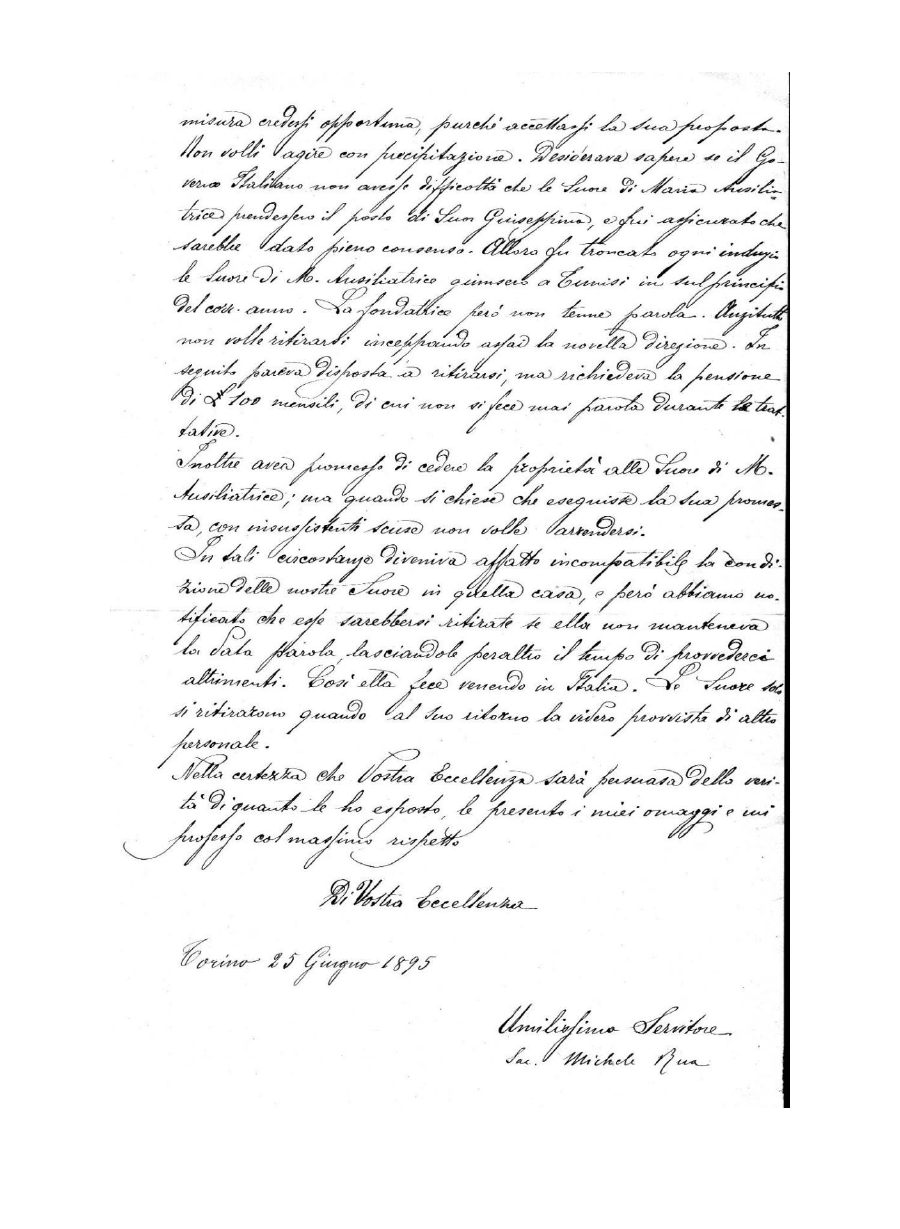 misura credessi opportuna, purchè accettassi la sua proposta.
Non volli agire con precipitazione. Desiderava sapere se il Go-
verno Italiano non avesse difficoltà che le Suore di Maria Ausilia-
trice prendessero il posto di Suor Giuseppina, e fui assicurato che
sarebbe dato pieno consenso. Allora fu troncato ogni indugio
le Suore di M. Ausiliatrice giunsero a Tunisi in sul principio
del corr. anno. La fondatrice però non tenne parola. Anzitutto
non volle ritirarsi inceppando assai la novella direzione. In
seguito pareva disposta a ritirarsi, ma richiedeva la pensione
di £ 100 mensili, di cui non si fece mai parola durante le trat-
tative.
Inoltre avea promesso di cedere la proprietà alle Suore di M.
Ausiliatrice; ma quando si chiese che eseguisse la sua promes-
sa, con insussistenti scuse non volle arrendersi.
In tali circostanze diveniva affatto incompatibile la condi-
zione delle nostre Suore in quella casa, e però abbiamo no-
tificato che esse sarebbersi ritirate se ella non manteneva
la data parola, lasciandole peraltro il tempo di provvederci
altrimenti. Così ella fece venendo in Italia. Le Suore solo
si ritirarono quando al suo ritorno la videro provvista di altro
personale.
Nella certezza che Vostra Eccellenza sarà persuasa della veri-
tà di quanto le ho esposto, le presento i miei omaggi e mi
professo col massimo rispetto
Di Vostra Eccellenza
Torino 25 Giugno 1895
Umilissimo Servitore
Sac. Michele Rua